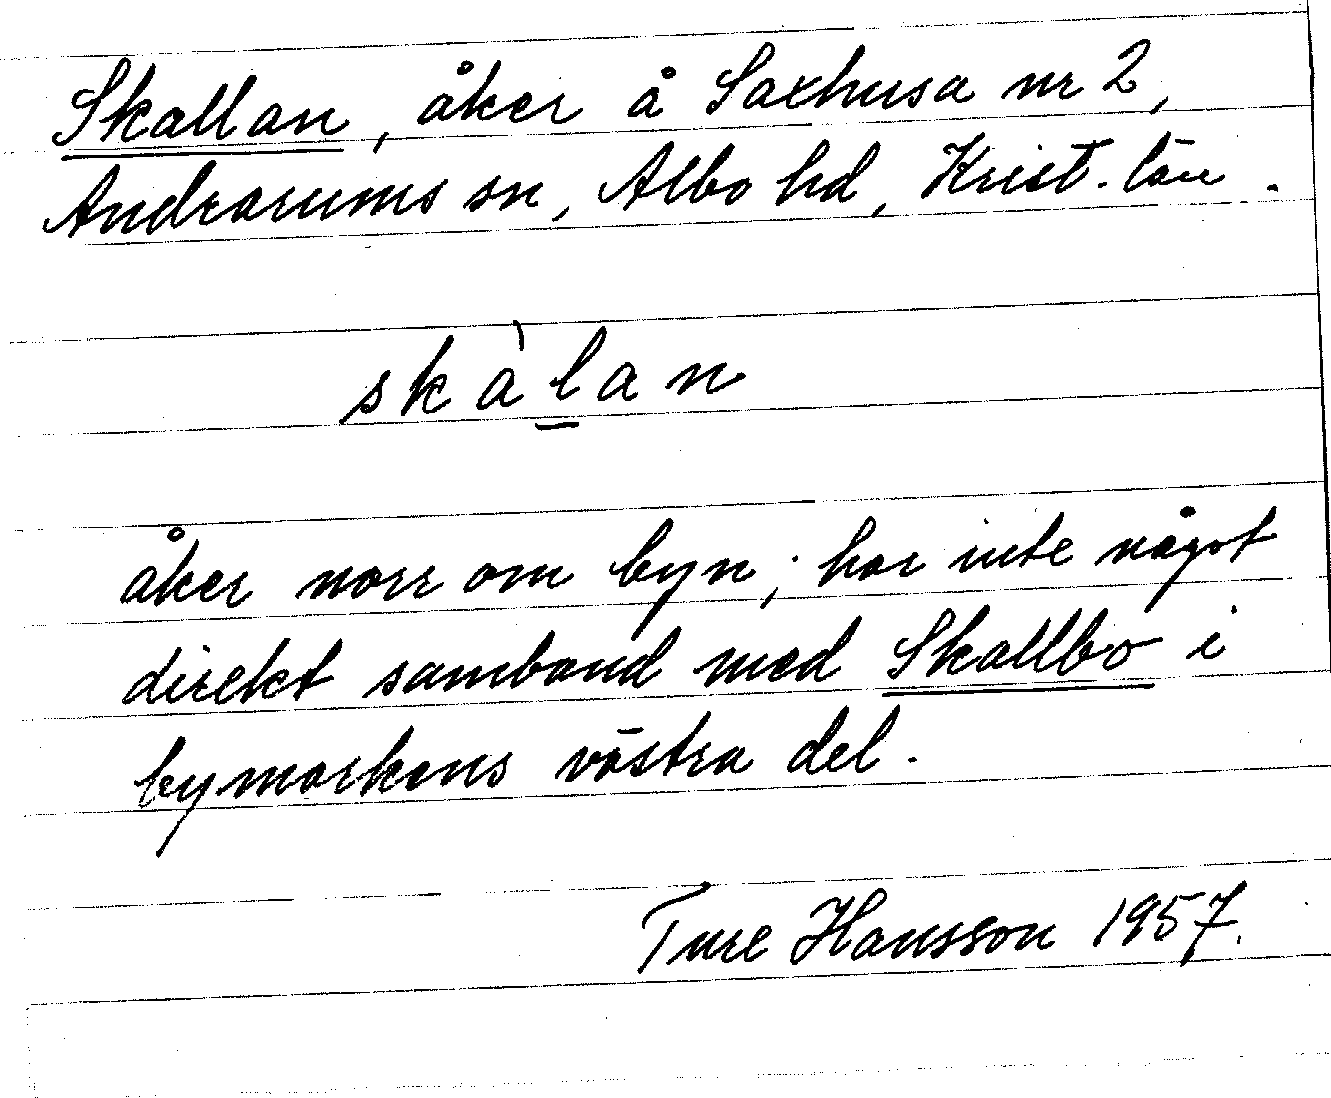 Skallan, åker å Saxhusa nr 2,
Andrarums sn, Albo hd, Krist. län.
skàl̠an
åker norr om byn; har inte något
direkt samband med Skallbo i
bymarkens västra del.
Ture Hansson 1957.